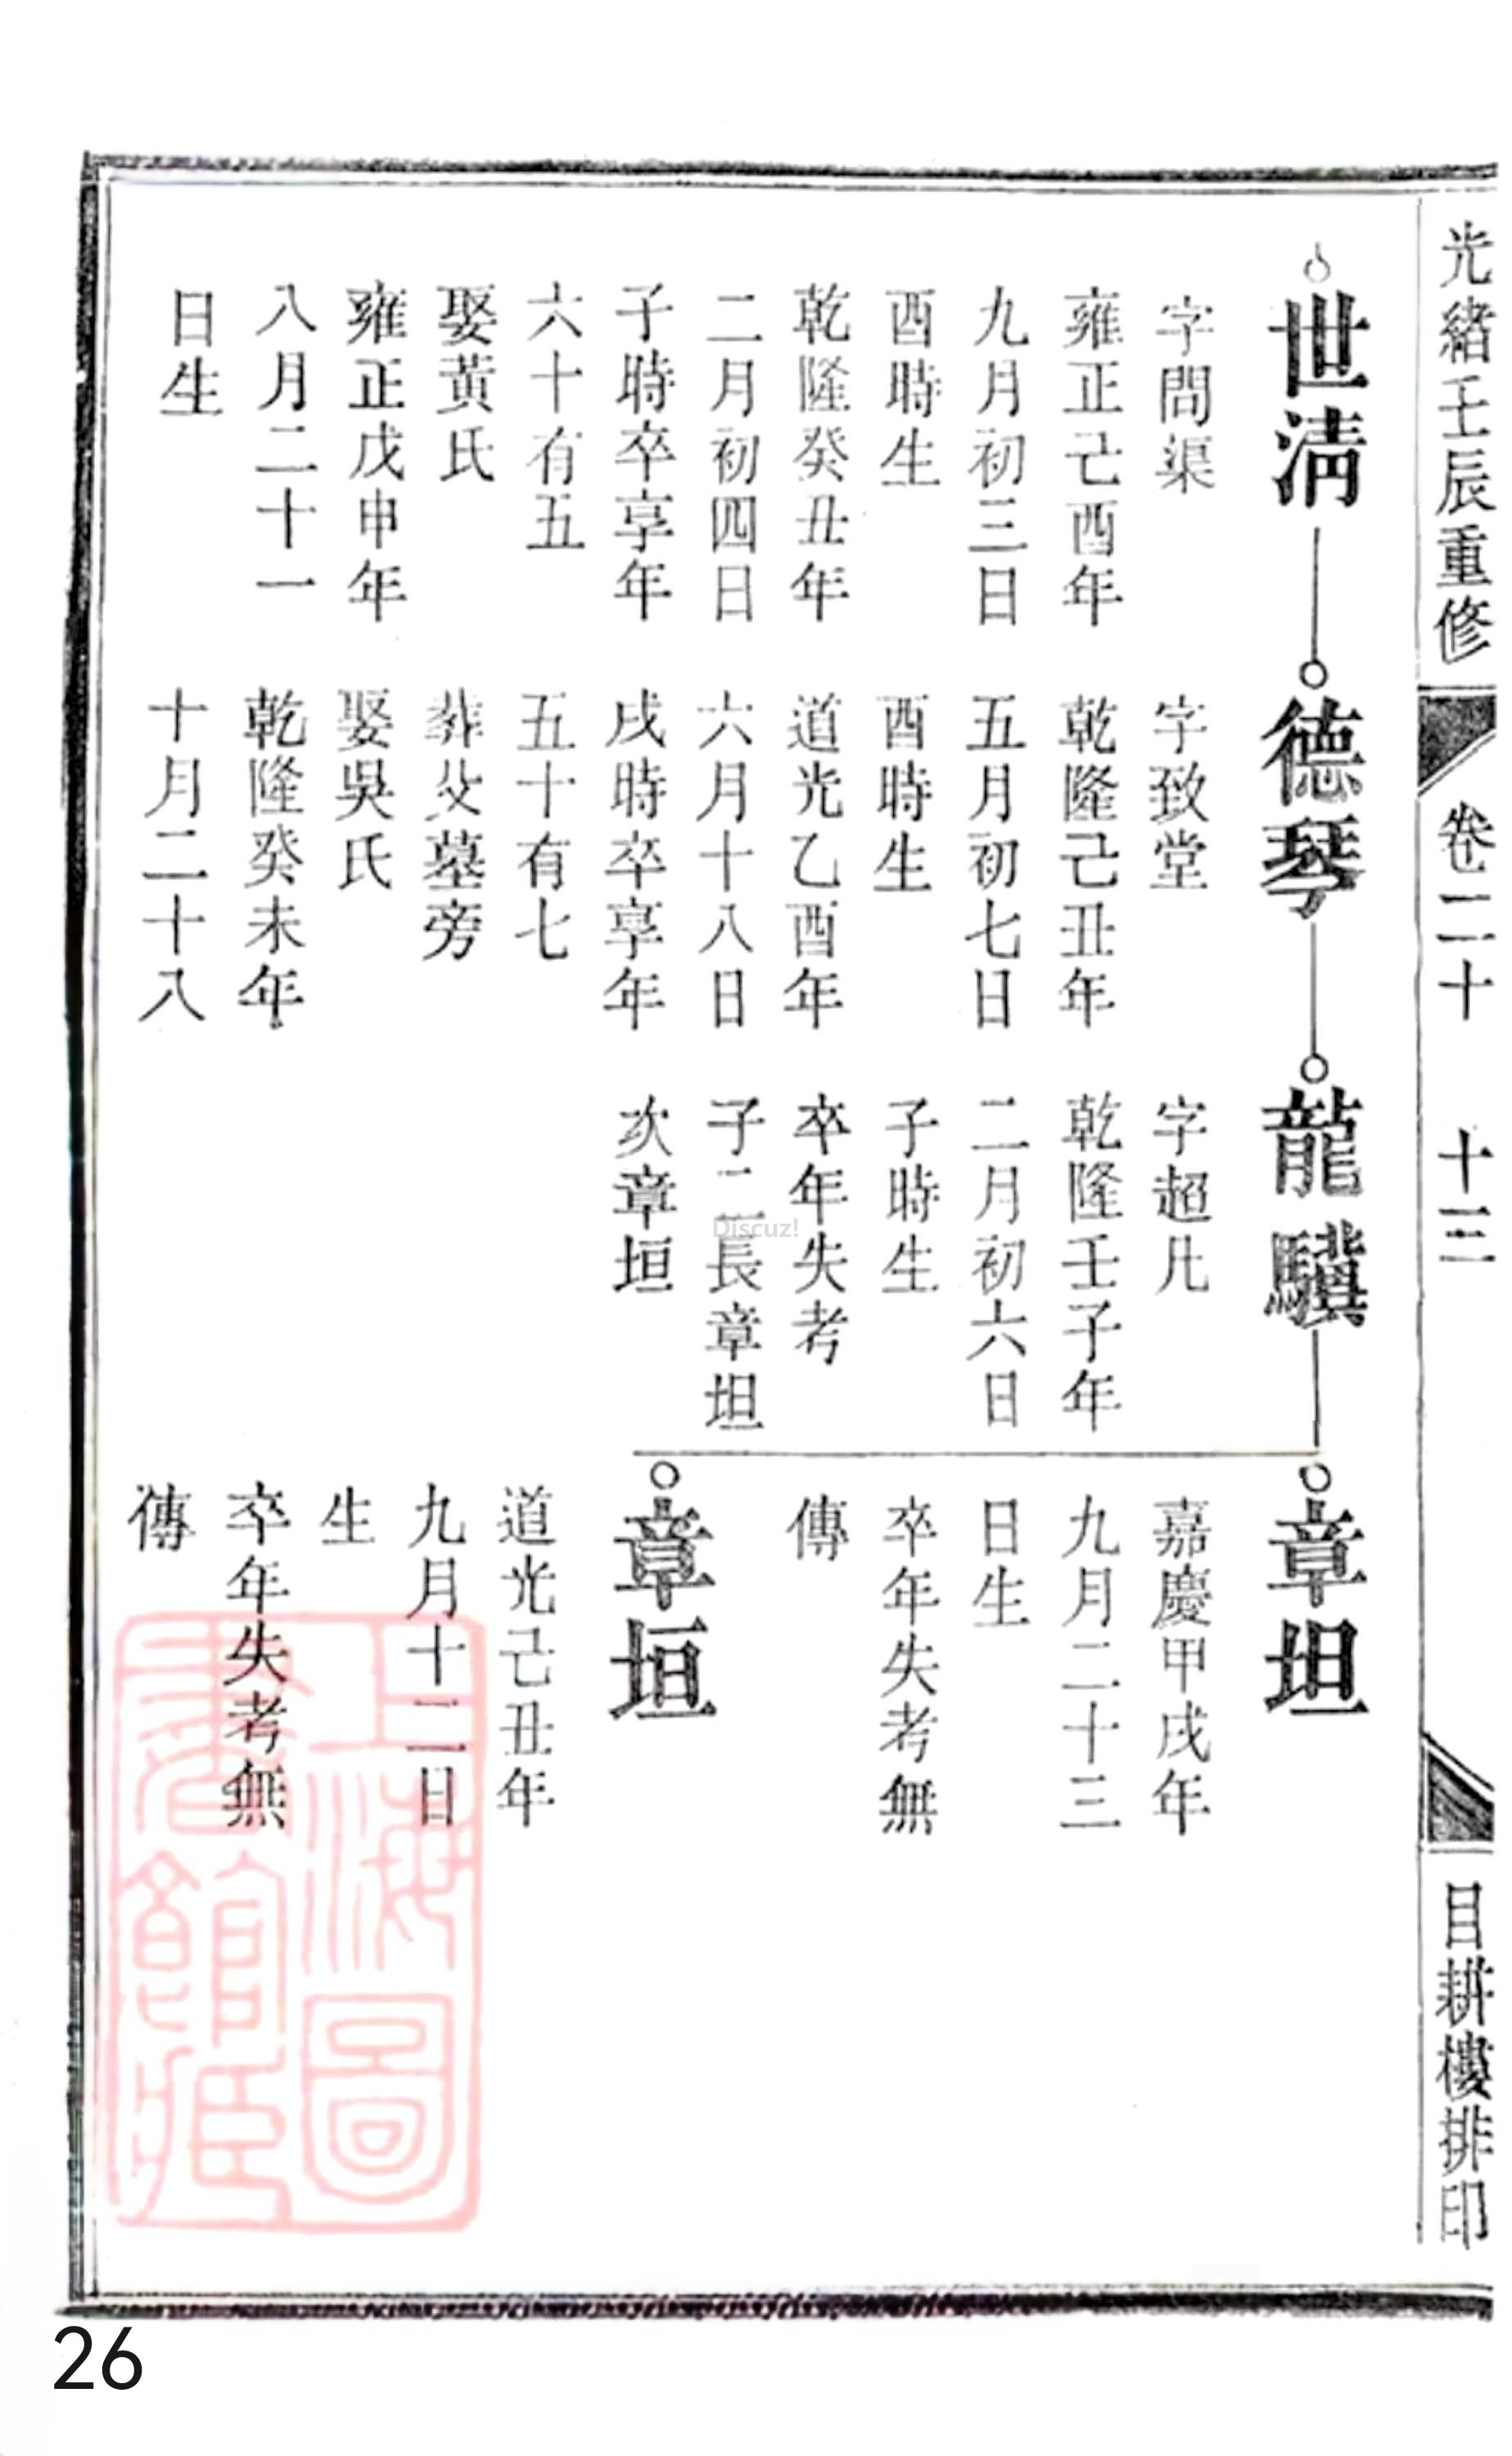 光緒壬辰重修
卷二十
十三
目耕樓排印
世淸
字問渠
雍正己酉年
九月初三日
酉時生
乾隆癸丑年
二月初四日
子時卒享年
六十有五
娶黃氏
雍正戊申年
八月二十一
日生
德琴
字致堂
乾隆己丑年
五月初七日
酉時生
道光乙酉年
六月十八日
戌時卒享年
五十有七
葬父墓旁
娶吳氏
乾隆癸未年
十月二十八
龍驥
字超凡
乾隆壬子年
二月初六日
子時生
卒年失考
子二長章坦
次章垣
章坦
嘉慶甲戌年
九月二十三
日生
卒年失考無
傳
章垣
道光己丑年
九月十二日
生
卒年失考無
傳
上海圖
書館藏
Discuz!
26